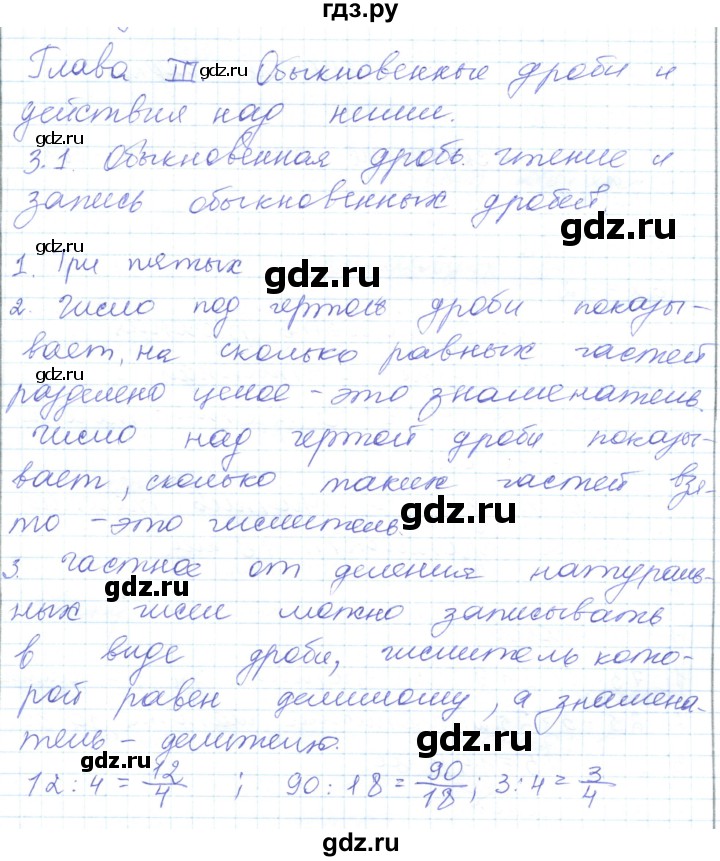 гдз.ру
Глава III Обыкновенные дроби и
gdz.ru
действия над ними.
3.1. Обыкновенная дробь. Чтение и
gdz.ru
запись обыкновенных дробей
gdz.ru
1. Три пятых
gdz.ru
2. Число под чертой дроби показы-
вает, на сколько равных частей
gdz.ru
разделено целое - это знаменатель.
Число над чертой дроби показы-
вает, сколько таких частей взя-
то - это числитель.
gdz.ru
3. Частное от деления натураль-
gdz.ru
ных чисел можно записывать
в виде дроби, числитель кото-
рой равен делимому, а знамена-
тель - делителю.
gdz.ru
12 : 4 = 12/4 ; 90 : 18 = 90/18 ; 3 : 4 = 3/4
gdz.ru